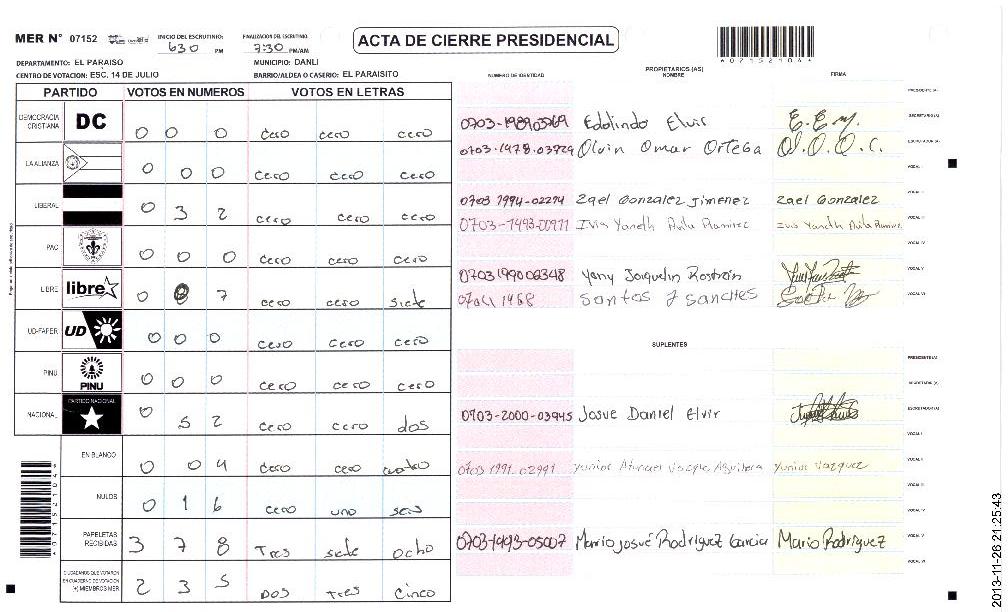 MER N° 07152 INICIO DEL ESCRUTINIO: 630 PM FINALIZACION DEL ESCRUTINIO: 7:30 PM/AM
ACTA DE CIERRE PRESIDENCIAL
DEPARTAMENTO: EL PARAISO MUNICIPIO: DANLI
CENTRO DE VOTACION: ESC. 14 DE JULIO BARRIO/ALDEA O CASERIO: EL PARAISITO
NUMERO DE IDENTIDAD PROPIETARIOS (AS) NOMBRE FIRMA
PARTIDO VOTOS EN NUMEROS VOTOS EN LETRAS
DEMOCRACIA CRISTIANA DC 0 0 0 cero cero cero
Eddlindo Elvir E.Em.
0703-1978-03929 Olvin Omar Ortega O.O.O.C.
LA ALIANZA 0 0 0 cero cero cero
LIBERAL 0 3 2 cero cero cero
0703 1994-02274 Zael Gonzalez Jimenez Zael Gonzalez
0703-1493-00971 Ivis Yaneth Avila Ramirez Ivis Yaneth Avila Ramirez
PAC 0 0 0 cero cero cero
LIBRE libre 0 7 cero cero siete
0703199006348 Yeny Joaquelin
Santos J sanches
UD-FAPER UD 0 0 0 cero cero cero
SUPLENTES
PINU PINU 0 0 0 cero cero cero
NACIONAL PARTIDO NACIONAL 0 5 2 cero cero dos
0703-2000-03945 Josue Daniel Elvir
EN BLANCO 0 0 4 cero cero cuatro
0703 1991-02991 Yunior Vazquez
NULOS 0 1 6 cero uno seis
PAPELETAS RECIBIDAS 3 7 8 Tres siete ocho
0703-1993-05007 Mario Josué Rodriguez Garcia Mario Rodriguez
CIUDADANOS QUE VOTARON EN CUADERNO DE VOTACION (+) MIEMBROS MER 2 3 5 Dos Tres Cinco
2013-11-26 21:25:43